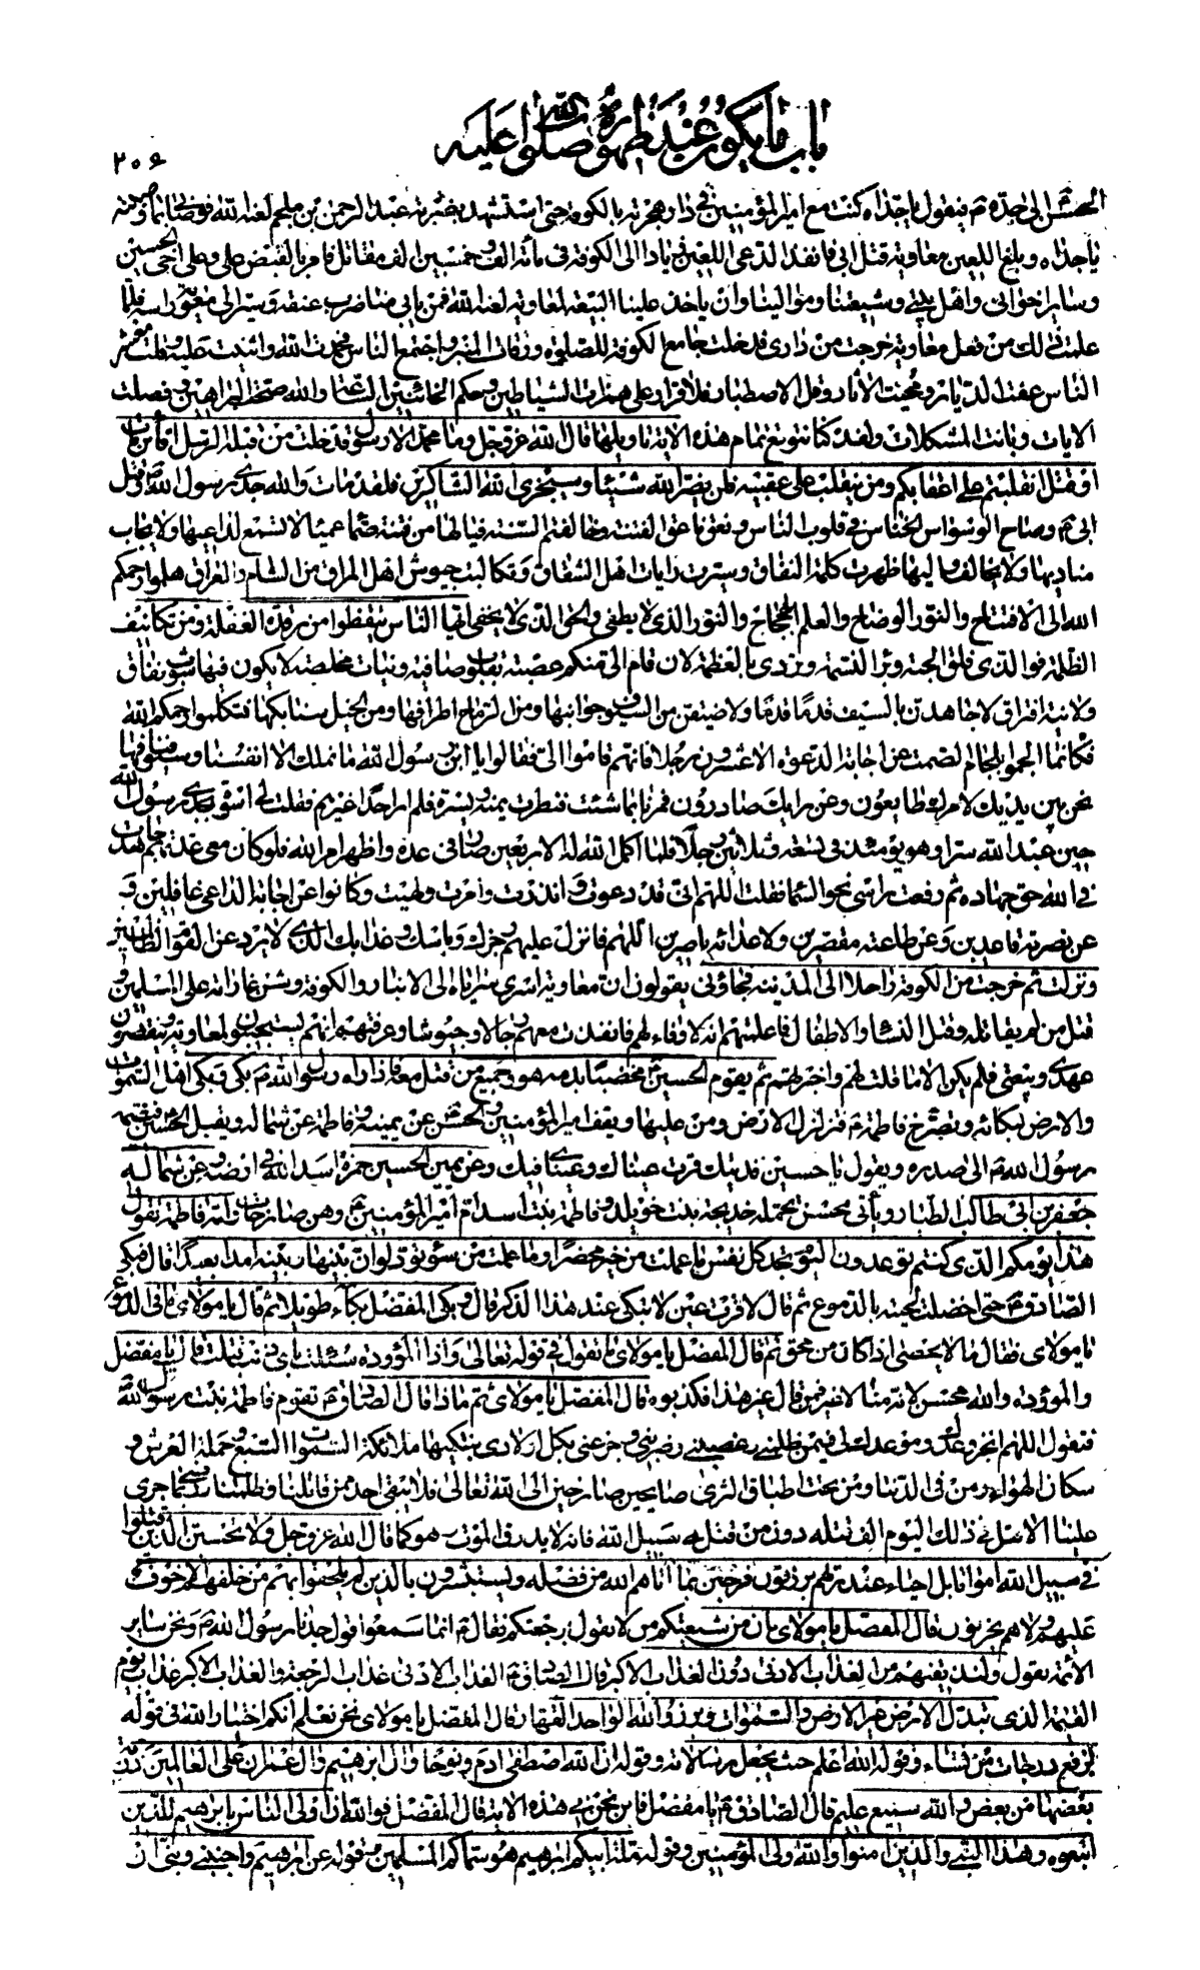 باب ما يكون عند ظهوره صلوات الله عليه
٢٠۶
الحسن الى جده ص فيقول يا جداه كنت مع امير المؤمنين في دار هجرته بالكوفة حتى استشهد بضربة عبد الرحمن بن ملجم لعنه الله فوصاني بما وصيته
يا جداه و بلغ اللعين معاوية قتل ابي فانفذ الدعي اللعين زيادا الى الكوفة في مائة الف و خمسين الف مقاتل فامر بالقبض علي و على اخي الحسين
و ساير اخواني و اهل بيتي و شيعتنا و موالينا و ان ياخذ علينا البيعة لمعاوية لعنه الله فمن يابى منا ضرب عنقه و سير الى معوية راسه فلما
علمت ذلك من فعل معاوية خرجت من داري فدخلت جامع الكوفة للصلوة و رقات المنبر و اجتمع الناس فحمدت الله و اثنيت عليه و قلت معشر
الناس عفت الديار و محيت الاثار و قل الاصطبار فلا قرار على همزات الشياطين و حكم الخائنين الساعة و الله صحت البراهين و فصلت
الايات و بانت المشكلات و لقد كنا نتوقع تمام هذه الاية تاويلها قال الله عز و جل و ما محمد الا رسول قد خلت من قبله الرسل افان مات
او قتل انقلبتم على اعقابكم و من ينقلب على عقبيه فلن يضر الله شيئا و سيجزي الله الشاكرين فلقد مات و الله جدي رسول الله و قتل
ابي ع و صاح الوسواس الخناس في قلوب الناس و نعق ناعق الفتنة و خالفتم السنة فيا لها من فتنة صماء عمياء لا تسمع لداعيها و لا يجاب
مناديها و لا يخالف واليها ظهرت كلمة النفاق و سيرت رايات اهل الشقاق و تكالبت جيوش اهل المراق من الشام و العراق هلموا رحمكم
الله الى الافتتاح و النور الوضاح و العلم الجحجاح و النور الذي لا يطفى و الحق الذي لا يخفى ايها الناس تيقظوا من رقدة الغفلة و من تكاثيف
الظلمة فو الذي فلق الحبة و برأ النسمة و تردى بالعظمة لان قام الي منكم عصبة بقلوب صافية و نيات مخلصة لا يكون فيها شوب نفاق
و لا نية افتراق لاجاهدن بالسيف قدما قدما و لاضيقن من السيوف جوانبها و من الرماح اطرافها و من الخيل سنابكها فتكلموا رحمكم الله
فكانما الجموا بلجام الصمت عن اجابة الدعوة الا عشرون رجلا فانهم قاموا الي فقالوا يا ابن رسول الله ما نملك الا انفسنا و سيوفنا فها
نحن بين يديك لامرك طايعون و عن رايك صادرون فمرنا بما شئت فنظرت يمنة و يسرة فلم ار احدا غيرهم فقلت لي اسوة بجدي رسول الله
حين عبد الله سرا و هو يومئذ في تسعة و ثلثين رجلا فلما اكمل الله له الاربعين صار في عدة و اظهر امر الله فلو كان معي عدتهم جاهدت
في الله حق جهاده ثم رفعت راسي نحو السماء فقلت اللهم اني قد دعوت و انذرت و امرت و نهيت و كانوا عن اجابة الداعي غافلين و
عن نصرته قاعدين و عن طاعته مقصرين و لاعدائه ناصرين اللهم فانزل عليهم رجزك و باسك و عذابك الذي لا يرد عن القوم الظالمين
و نزلت ثم خرجت من الكوفة راحلا الى المدينة فجاؤني يقولون ان معاوية اسرى سراياه الى الانبار و الكوفة و شن غاراته على المسلمين و
قتل من لم يقاتله و قتل النساء و الاطفال فاعلمتهم انه لا وفاء لهم فانفذت معهم رجالا و جيوشا و عرفتهم انهم يستجيبون لمعاوية و ينقضون
عهدي و بيعتي فلم يكن الا ما قلت لهم و اخبرتهم ثم يقوم الحسين ع مخضبا بدمه هو و جميع من قتل معه فاذا راه رسول الله ص بكى و بكى اهل السموات
و الارض لبكائه و تصرخ فاطمة ع فتزلزل الارض و من عليها و يقف امير المؤمنين و الحسن عن يمينه و فاطمة عن شماله و يقبل الحسين فيضمه
رسول الله ص الى صدره و يقول يا حسين فديتك قرت عيناك و عيناي فيك و عن يمين الحسين حمزة اسد الله في ارضه و عن شماله
جعفر بن ابي طالب الطيار و يأتي محسن تحمله خديجة بنت خويلد و فاطمة بنت اسد ام امير المؤمنين ع و هن صارخات و امه فاطمة تقول
هذا يومكم الذي كنتم توعدون اليوم تجد كل نفس ما عملت من خير محضرا و ما عملت من سوء تود لو ان بينها و بينه امدا بعيدا قال فبكى
الصادق ع حتى اخضلت لحيته بالدموع ثم قال لا قرت عين لا تبكي عند هذا الذكر قال و بكى المفضل بكاء طويلا ثم قال يا مولاي ما في الدموع
يا مولاي فقال ما لا يحصى اذا كان من محق ثم قال المفضل يا مولاي ما تقول في قوله تعالى و اذا الموؤدة سئلت باي ذنب قتلت قال يا مفضل
و الموؤدة و الله محسن لانه منا لا غير فمن قال غير هذا فكذبوه قال المفضل يا مولاي ثم ماذا قال الصادق ع تقوم فاطمة بنت رسول الله
فتقول اللهم انجز وعدك و موعدك لي فيمن ظلمني و غصبني و ضربني و جزعني بكل اولادي فتبكيها ملائكة السموات السبع و حملة العرش و
سكان الهواء و من في الدنيا و من تحت اطباق الثرى صايحين صارخين الى الله تعالى فلا يبقى احد ممن قاتلنا و ظلمنا و رضي بما جرى
علينا الا قتل في ذلك اليوم الف قتلة دون من قتل في سبيل الله فانه لا يذوق الموت و هو كما قال الله عز و جل و لا تحسبن الذين قتلوا
في سبيل الله امواتا بل احياء عند ربهم يرزقون فرحين بما اتاهم الله من فضله و يستبشرون بالذين لم يلحقوا بهم من خلفهم الا خوف
عليهم و لا هم يحزنون قال المفضل يا مولاي فان من شيعتكم من لا يقول برجعتكم فقال ع انما سمعوا قول جدنا رسول الله ص و نحن ساير
الائمة نقول و لنذيقنهم من العذاب الادنى دون العذاب الاكبر قال الصادق ع العذاب الادنى عذاب الرجعة و العذاب الاكبر عذاب يوم
القيمة الذي تبدل الارض غير الارض و السموات و برزوا لله الواحد القهار قال المفضل يا مولاي نحن نعلم انكم اختيار الله في قوله
نرفع درجات من نشاء و قوله الله اعلم حيث يجعل رسالاته و قوله ان الله اصطفى ادم و نوحا و ال ابرهيم و ال عمران على العالمين ذرية
بعضها من بعض و الله سميع عليم قال الصادق ع يا مفضل فاين نحن في هذه الاية قال المفضل فو الله ان اولى الناس بابرهيم للذين
اتبعوه و هذا النبي و الذين امنوا و الله ولي المؤمنين و قوله ملة ابيكم ابرهيم هو سماكم المسلمين و قوله عن ابرهيم و اجنبني و بني ان